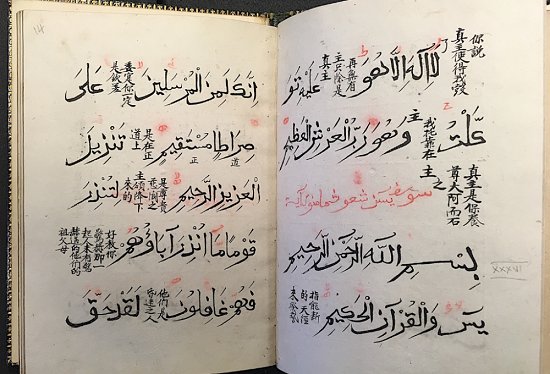 لَا إِلَهَ إِلَّا هُوَ عَلَيْهِ تَوَ
你說
真主使得我彀了
再無有主只除是真主
كَّلْتُ وَهُوَ رَبُّ الْعَرْشِ الْعَظِيمِ
我托靠在主
真主是你養
尊大阿而石
主之
بِسْمِ اللَّهِ الرَّحْمَنِ الرَّحِيمِ
XXXVI
يس وَالْقُرْآنِ الْحَكِيمِ
指能斷的天經来發
14
إِنَّكَ لَمِنَ الْمُرْسَلِينَ عَلَى
委是你一定是欽差
صِرَاطٍ مُسْتَقِيمٍ تَنْزِيلَ
正道
是在正道上
الْعَزِيزِ الرَّحِيمِ لِتُنْذِرَ
是尊貴慈憫之主頒降下来的
قَوْمًا مَا أُنْذِرَ آبَاؤُهُمْ
好教你
那一起人未有
過的他們的祖父母
فَهُمْ غَافِلُونَ لَقَدْ حَقَّ
他們是昏迷之人